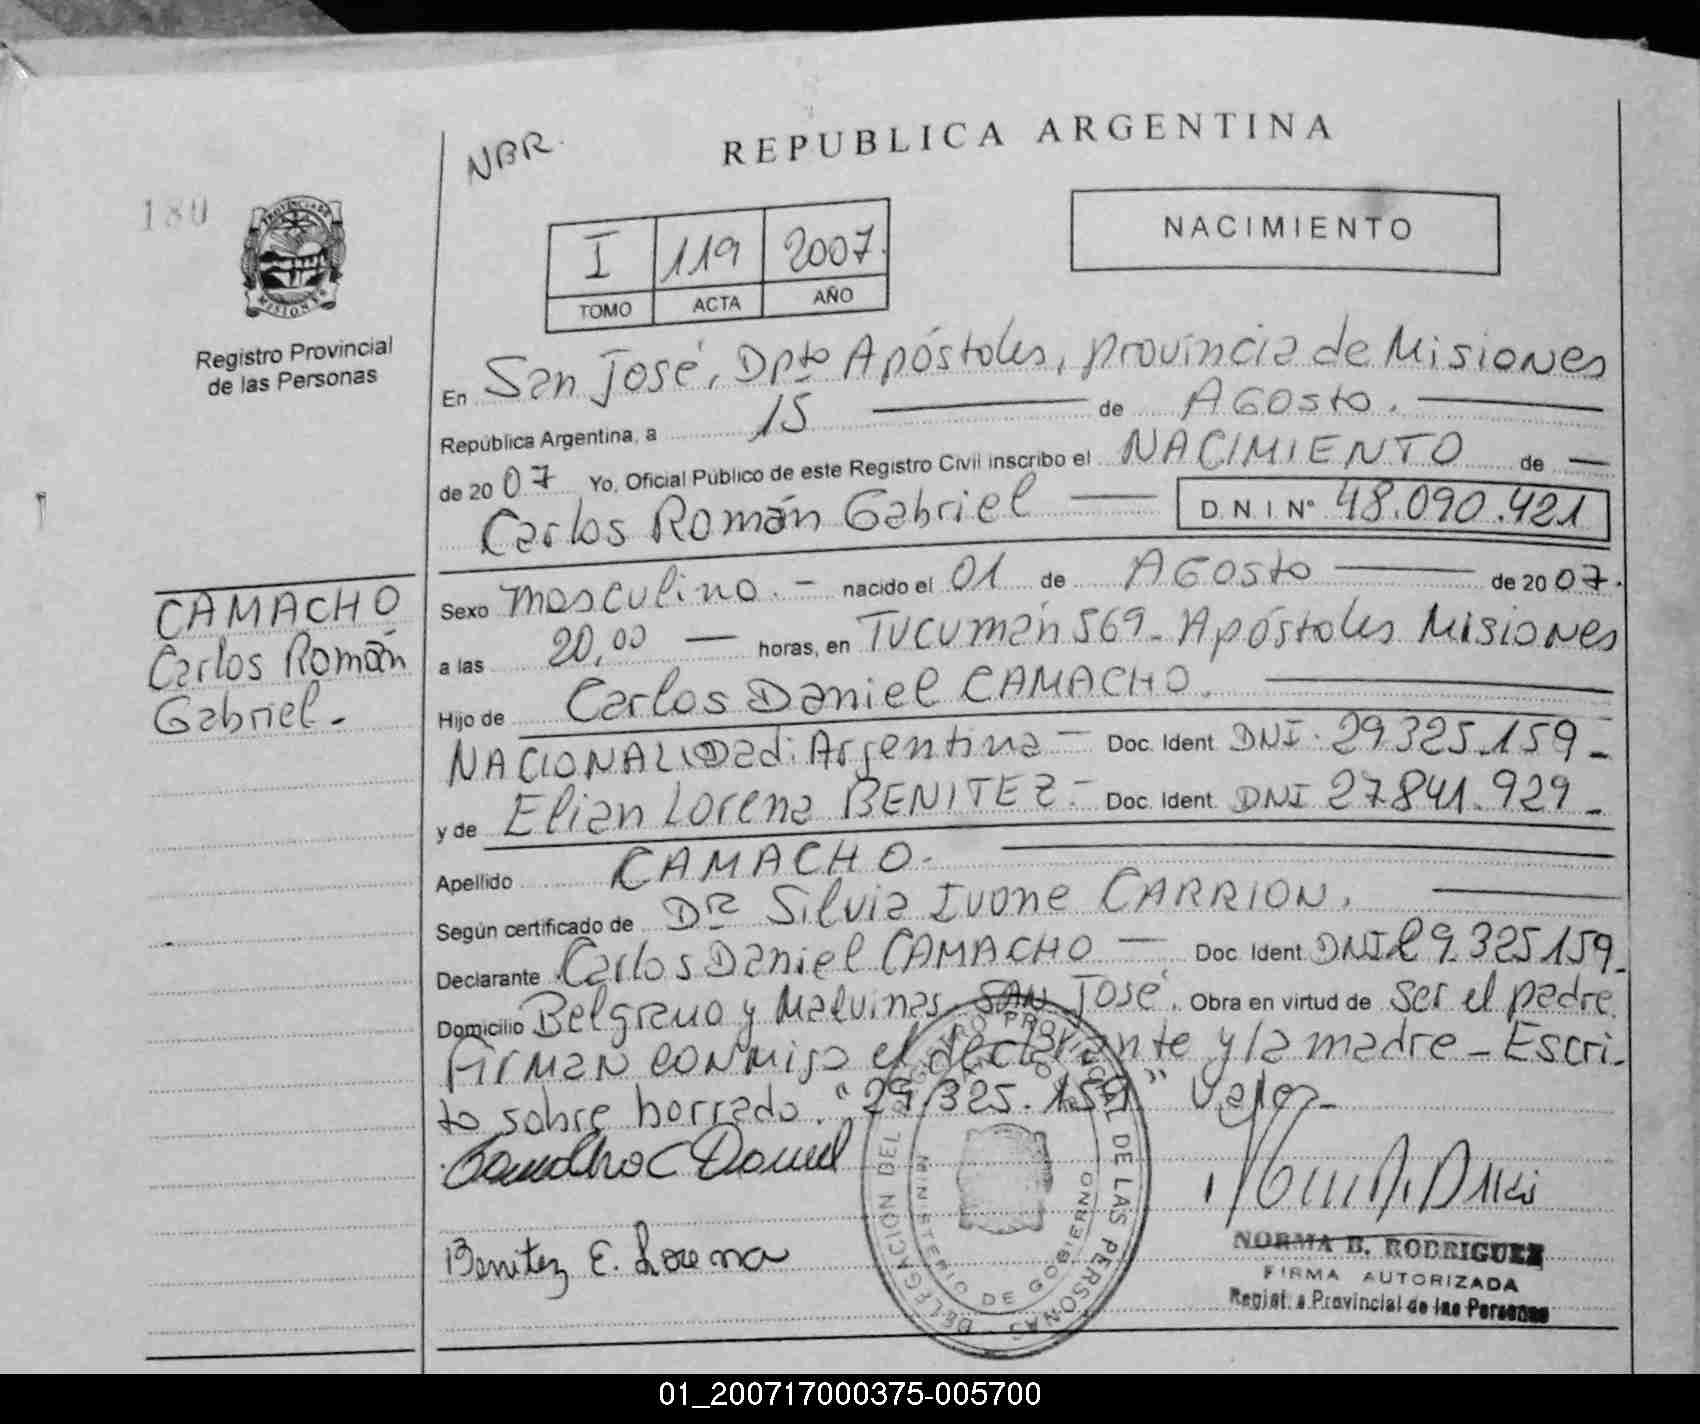 NBR.
REPUBLICA ARGENTINA
180
PROVINCIA DE MISIONES
Registro Provincial
de las Personas
I 119 2007.
TOMO ACTA AÑO
NACIMIENTO
En San José, Dpto Apóstoles, provincia de Misiones
República Argentina, a 15 de Agosto.
de 20 07 Yo, Oficial Público de este Registro Civil inscribo el NACIMIENTO de
Carlos Román Gabriel D.N.I. Nº 48.090.421
CAMACHO
Carlos Román
Gabriel.-
Sexo masculino.- nacido el 01 de Agosto de 20 07.
a las 20,00 horas, en Tucumán 569- Apóstoles Misiones
Hijo de Carlos Daniel CAMACHO.
NACIONALIDad: Argentina - Doc. Ident. DNI. 29.325.159-
y de Elian Lorena BENITEZ.- Doc. Ident. DNI 27.841.929-
Apellido CAMACHO-
Según certificado de Dra Silvia Ivone CARRION.
Declarante Carlos Daniel CAMACHO Doc. Ident. DNI 29.325159-
Domicilio Belgrano y Malvinas, SAN José. Obra en virtud de ser el padre.
Firman conmigo el declarante y la madre - Escri-
to sobre borrado. "29.325.159" Vale.-
Camacho C Daniel
Benitez E. Lorena
DELEGACION DEL REGISTRO PROVINCIAL DE LAS PERSONAS
MINISTERIO DE GOBIERNO
NORMA B. RODRIGUEZ
FIRMA AUTORIZADA
Regist. o Provincial de las Personas
01_200717000375-005700